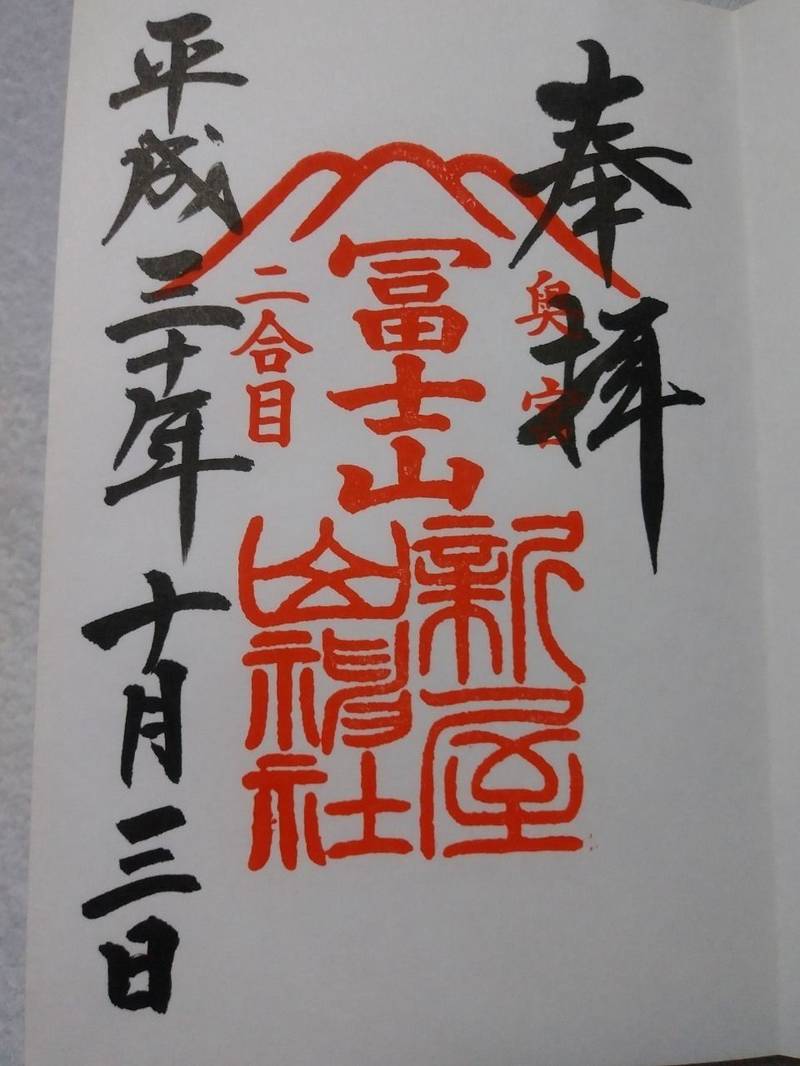 奉拝
奥宮
冨士山
二合目
新屋
山神社
平成三十年十月三日